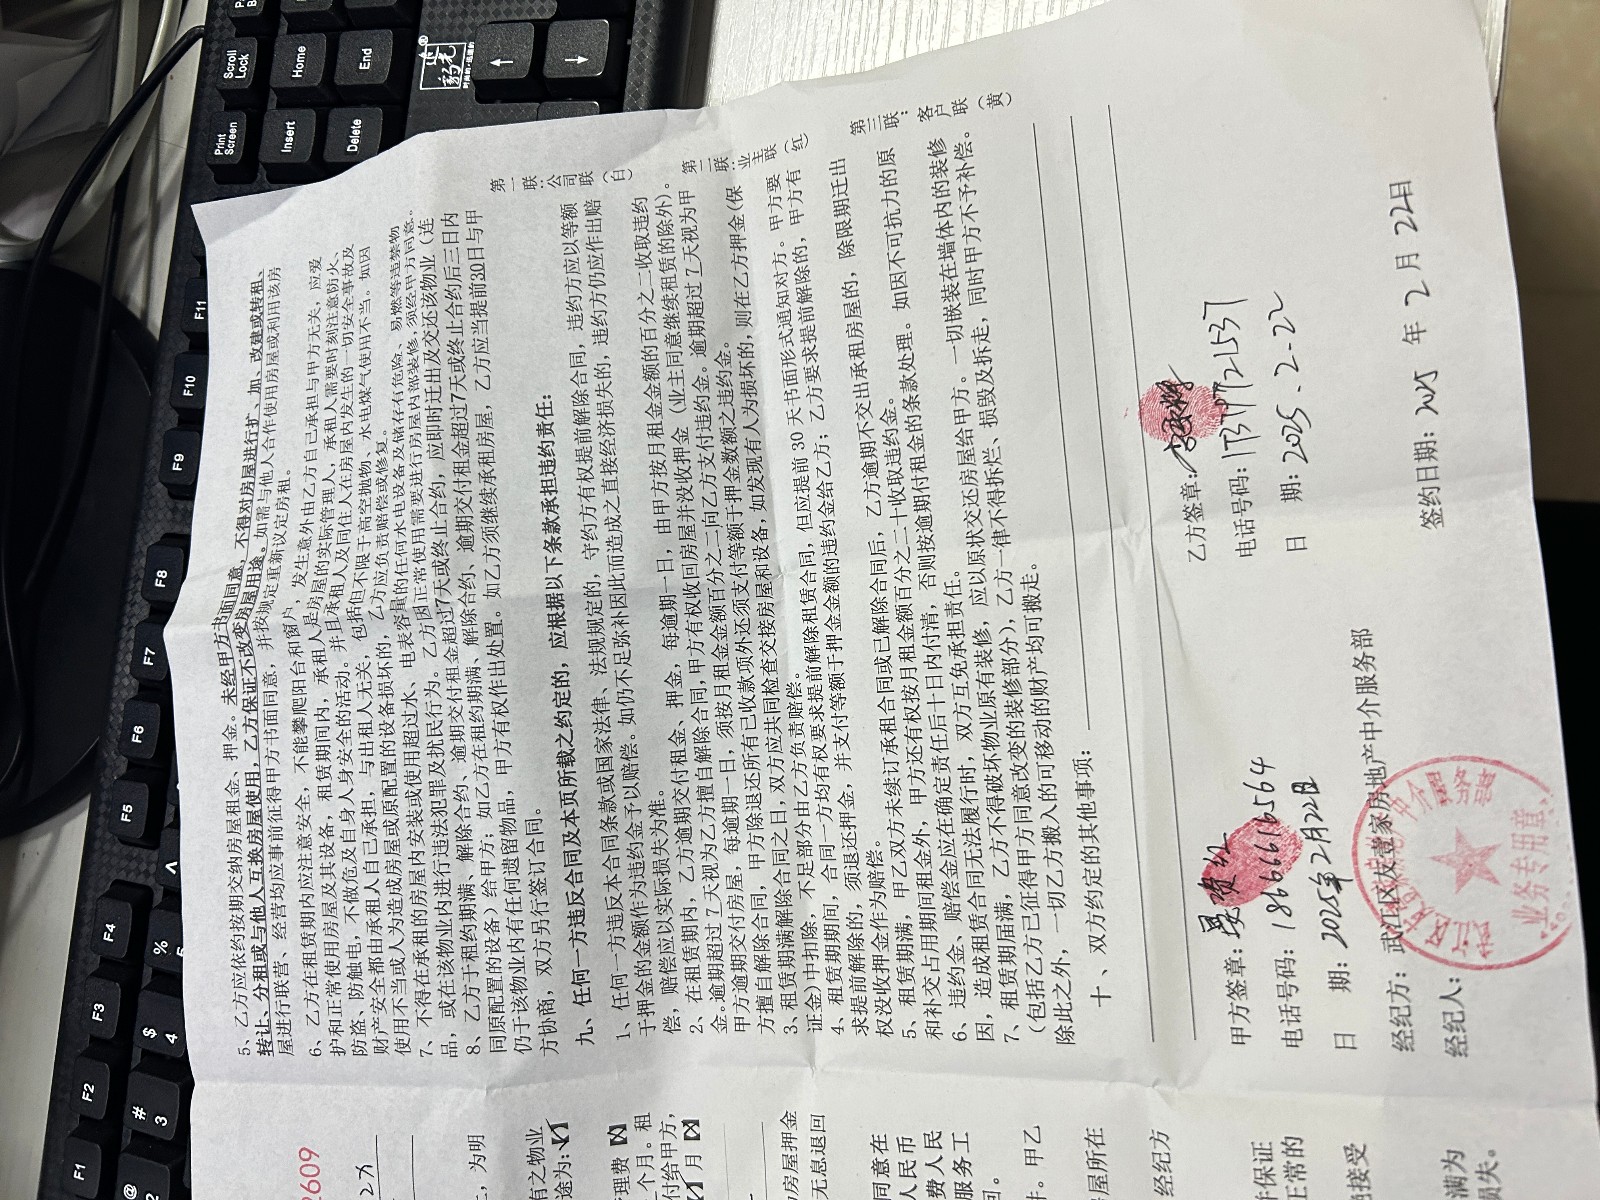 5、乙方应依约按期交纳房屋租金、押金。未经甲方书面同意，不得对房屋进行扩、加、改建或转租、
转让、分租或与他人互换房屋使用，乙方保证不改变房屋用途。如需与他人合作使用房屋或利用该房
屋进行联营、经营均应事前征得甲方书面同意，并按规定重新议定房租。
6、乙方在租赁期内应注意安全，不能攀爬阳台和窗户，发生意外由乙方自己承担与甲方无关，应爱
护和正常使用房屋及其设备，租赁期间内，承租人是房屋的实际管理人，承租人需要时刻注意防火、
防盗、防触电，不做危及自身人身安全的活动。并且承租人及同住人在房屋内发生的一切安全事故及
财产安全都由承租人自己承担，与出租人无关，包括但不限于高空抛物、水电煤气使用不当。如因
使用不当或人为造成房屋或原配置的设备损坏的，乙方应负责赔偿或修复。
7、不得在承租的房屋内安装或使用超过水、电表容量的任何水电设备及储存有危险、易燃等违禁物
品，或在该物业内进行违法犯罪及扰民行为。乙方因正常使用需要进行房屋内部装修，须经甲方同意。
8、乙方于租约期满、解除合约、逾期交付租金超过7天或终止合约，应即时迁出及交还该物业（连
同原配置的设备）给甲方；如乙方在租约期满、解除合约、逾期交付租金超过7天或终止合约后三日内
仍于该物业内有任何遗留物品，甲方有权作出处置。如乙方须继续承租房屋，乙方应当提前30日与甲
方协商，双方另行签订合同。
九、任何一方违反合同及本页所载之约定的，应根据以下条款承担违约责任：
1、任何一方违反本合同条款或国家法律、法规规定的，守约方有权提前解除合同，违约方应以等额
于押金的金额作为违约金予以赔偿。如仍不足弥补因此而造成之直接经济损失的，违约方仍应作出赔
偿，赔偿应以实际损失为准。
2、在租赁期内，乙方逾期交付租金、押金，每逾期一日，由甲方按月租金金额的百分之二收取违约
金。逾期超过7天视为乙方擅自解除合同，甲方有权收回房屋并没收押金（业主同意继续租赁的除外）。
甲方逾期交付房屋，每逾期一日，须按月租金金额百分之二向乙方支付违约金。逾期超过7天视为甲
方擅自解除合同，甲方除退还所有已收款项外还须支付等额于押金数额之违约金。
3、租赁期满解除合同之日，双方应共同检查交接房屋和设备，如发现有人为损坏的，则在乙方押金（保
证金）中扣除，不足部分由乙方负责赔偿。
4、租赁期期间，合同一方均有权要求提前解除租赁合同，但应提前30天书面形式通知对方。甲方要
求提前解除的，须退还押金，并支付等额于押金金额的违约金给乙方；乙方要求提前解除的，甲方有
权没收押金作为赔偿。
5、租赁期满，甲乙双方未续订承租合同或已解除合同后，乙方逾期不交出承租房屋的，除限期迁出
和补交占用期间租金外，甲方还有权按月租金额百分之二十收取违约金。
6、违约金、赔偿金应在确定责任后十日内付清，否则按逾期付租金的条款处理。如因不可抗力的原
因，造成租赁合同无法履行时，双方互免承担责任。
7、租赁期届满，乙方不得破坏物业原有装修，应以原状交还房屋给甲方。一切嵌装在墙体内的装修
（包括乙方已征得甲方同意改变的装修部分），乙方一律不得拆烂、损毁及拆走，同时甲方不予补偿。
除此之外，一切乙方搬入的可移动的财产均可搬走。
十、双方约定的其他事项：
第一联：公司联（白）
第二联：业主联（红）
第三联：客户联（黄）
甲方签章：
电话号码：18666616564
日 期：2025年2月22日
经纪方：武江区友壹家房地产中介服务部
经纪人：
业务专用章
乙方签章：
电话号码：
日 期：2025.2-22
签约日期：2025 年 2 月 22日
2609
，为明
有之物业
途为：
管理费
个月。租
付给甲方，
月
房屋押金
无息退回
同意在
人民币
费人民
服务工
件。甲乙
屋所在
经纪方
保证
正常的
接受
满为
损失。
Print Screen
Scroll Lock
Insert
Home
Delete
End
F1
F2
F3
F4
F5
F6
F7
F8
F9
F10
F11
@
2
#
3
$
4
%
5
^
豹光